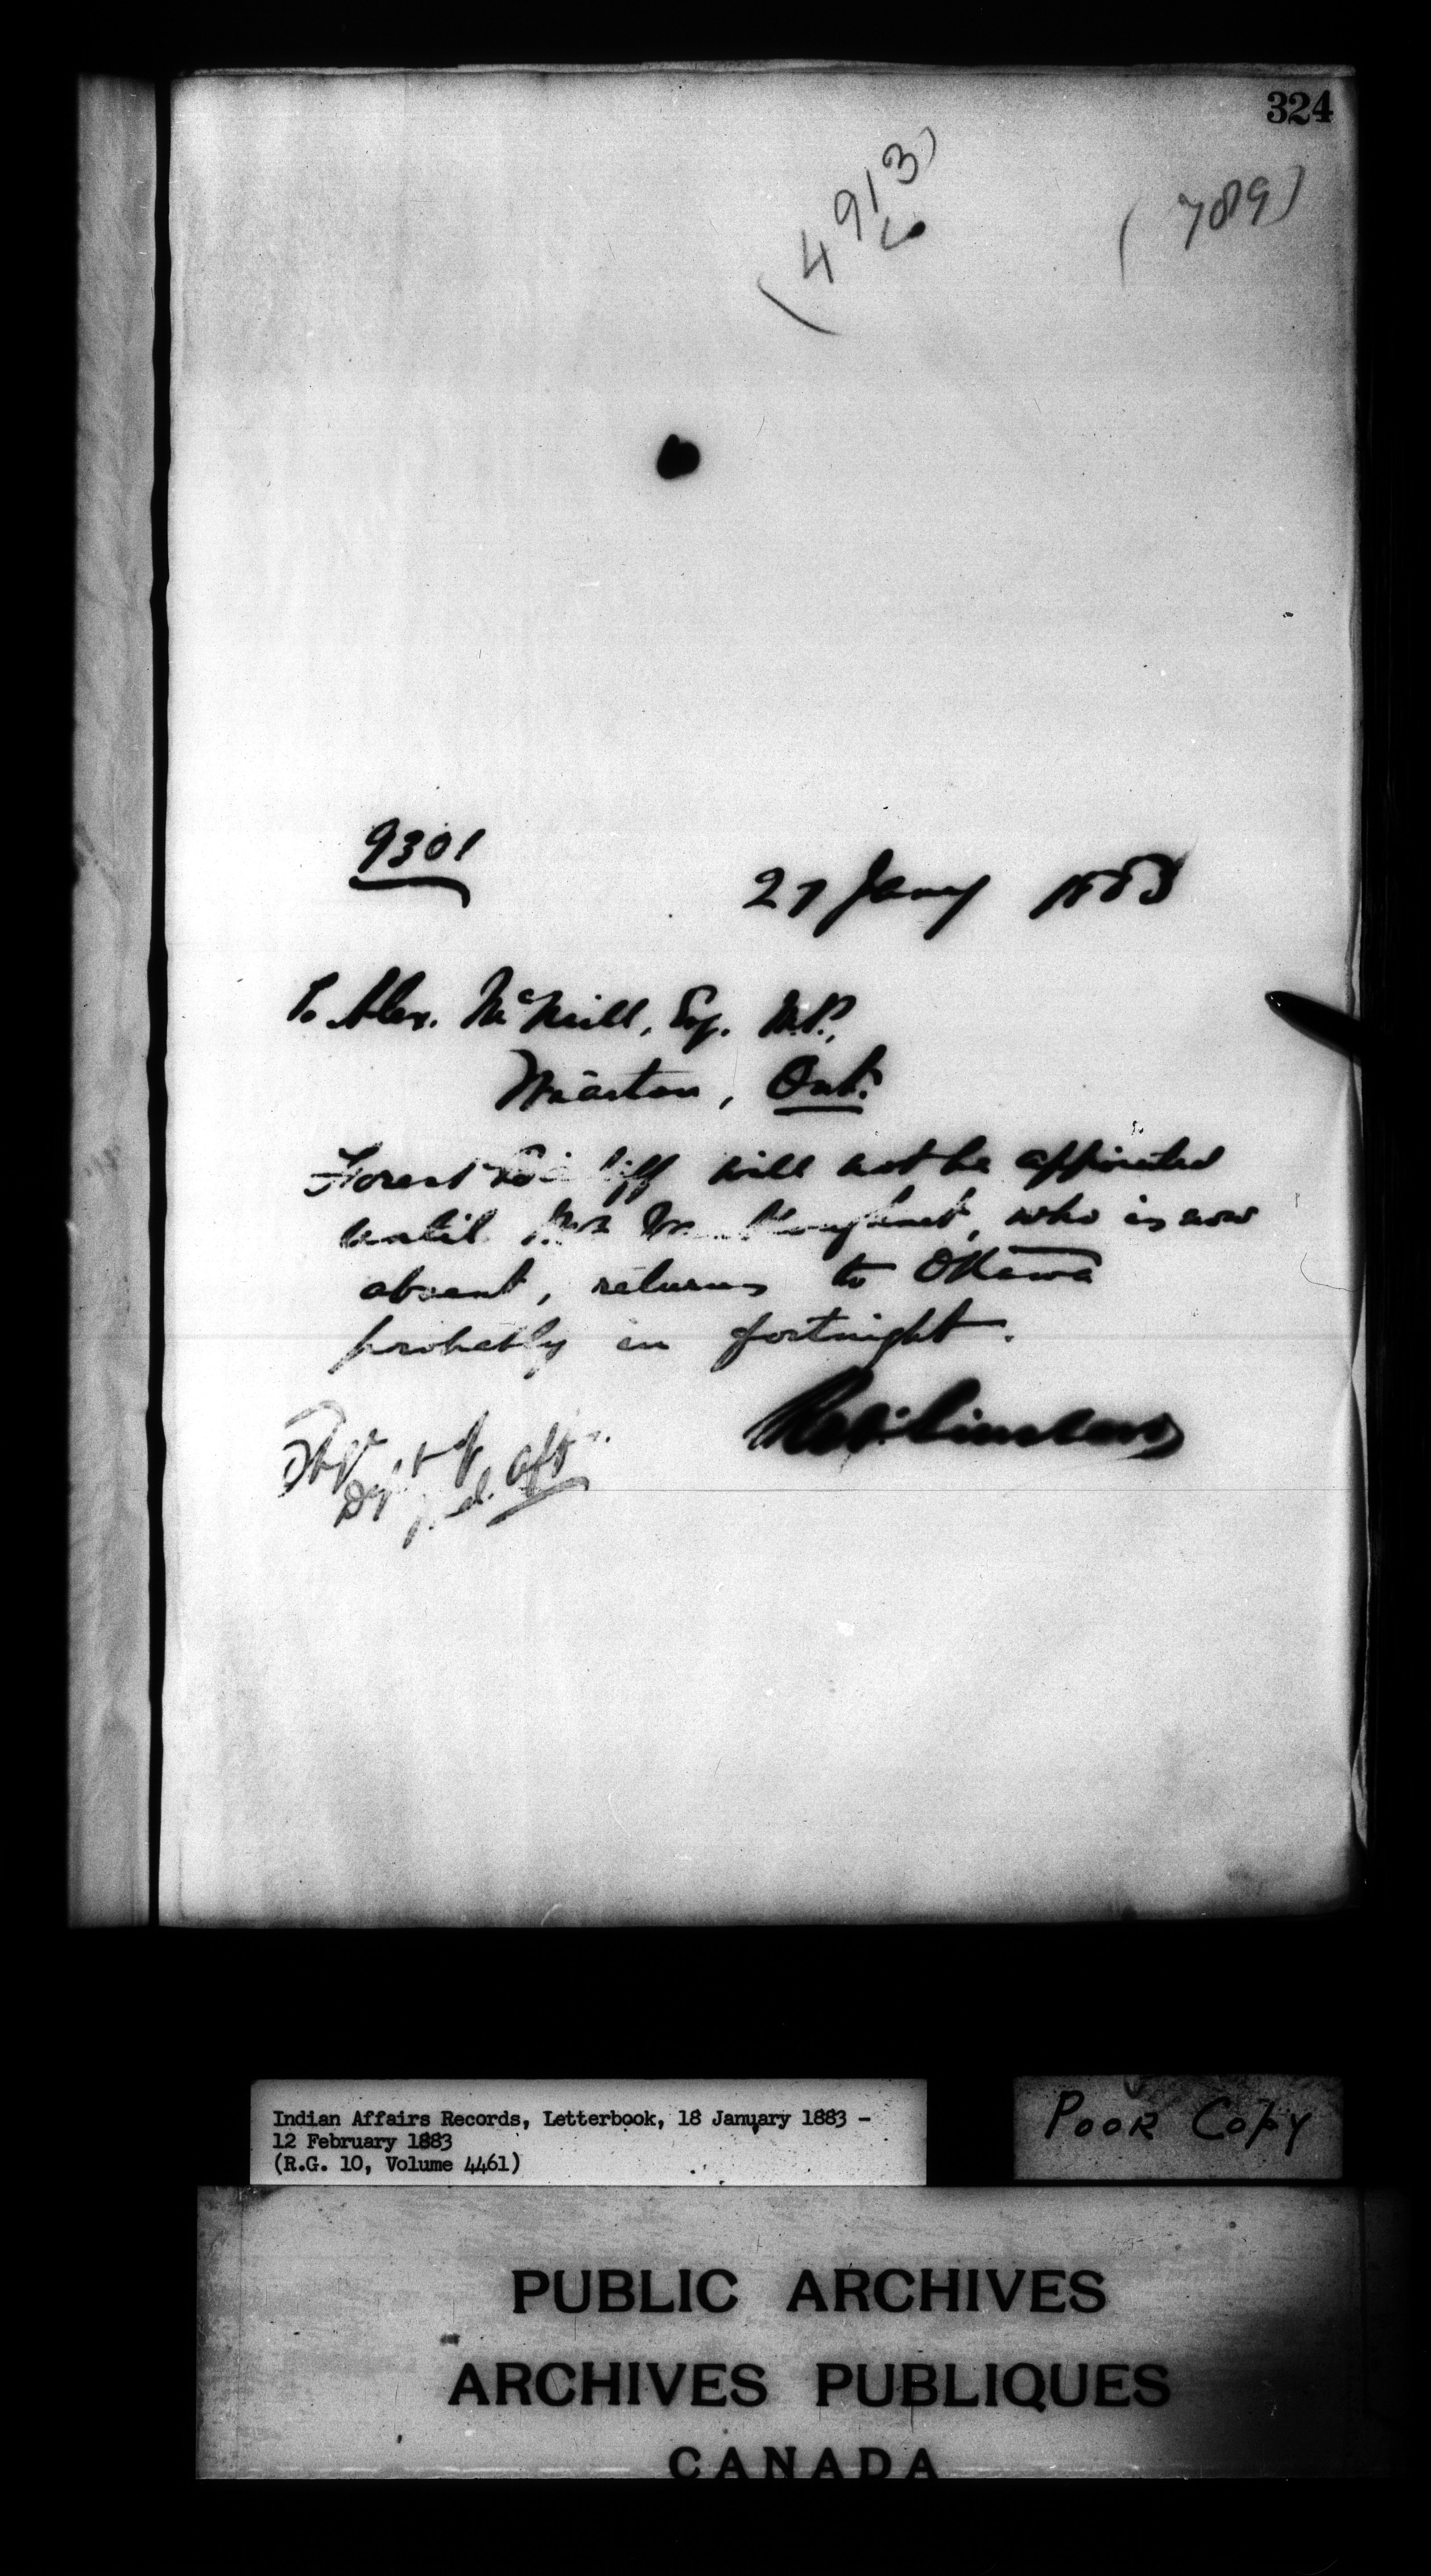 324
(4913)
(789)
9301
27 Jany 1883
To Alex. McNeill, Esq. M.P.,
Wiarton, Ont.
Forest Bailiff will not be appointed
until Mr Vankoughnet, who is now
absent, returns to Ottawa
probably in fortnight.
Dept of
Ind. Aff
Indian Affairs Records, Letterbook, 18 January 1883 -
12 February 1883
(R.G. 10, Volume 4461)
POOR COPY
PUBLIC ARCHIVES
ARCHIVES PUBLIQUES
CANADA